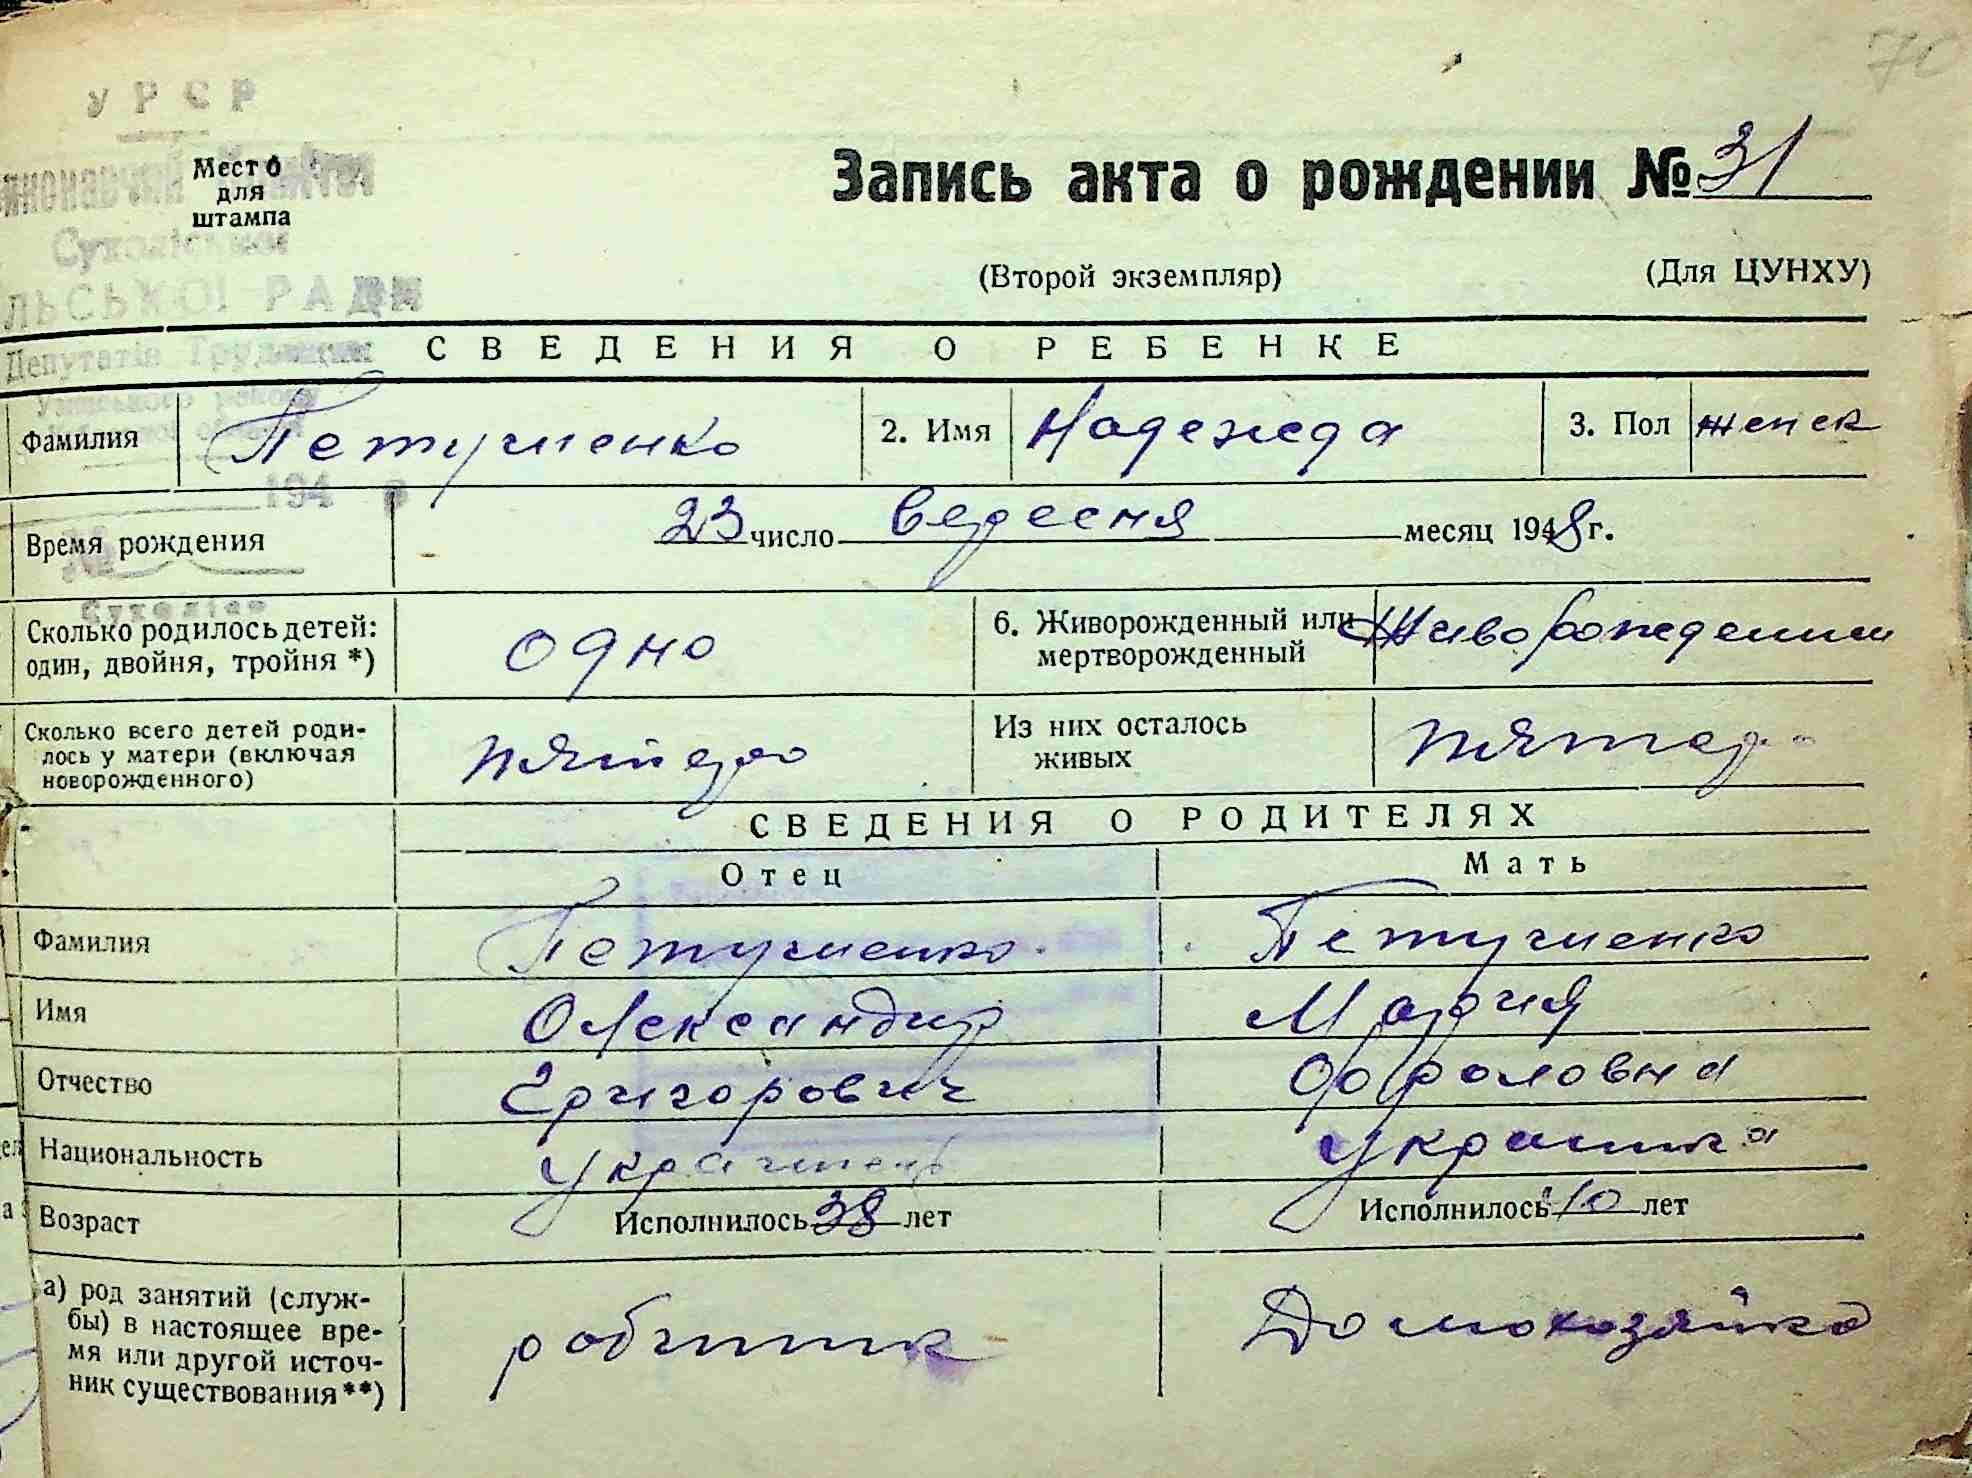 70
УРСР
Виконавчий Комітет
Место
для
штампа
Запись акта о рождении № 31
СІЛЬСЬКОЇ РАДИ
(Второй экземпляр) (Для ЦУНХУ)
Депутатів Трудящих
Уманського району
СВЕДЕНИЯ О РЕБЕНКЕ
Фамилия Петушенко 2. Имя Надежда 3. Пол женск
194 р
Время рождения 23 число вересня месяц 1948 г.
Сколько родилось детей: один, двойня, тройня *) одно 6. Живорожденный или мертворожденный Живорожденний
Сколько всего детей родилось у матери (включая новорожденного) пятеро Из них осталось живых пятеро
СВЕДЕНИЯ О РОДИТЕЛЯХ
Отец Мать
Фамилия Петушенко Петушенко
Имя Олександр Мария
Отчество Григорович Фроловна
Национальность українець українка
Возраст Исполнилось 38 лет Исполнилось 40 лет
а) род занятий (службы) в настоящее время или другой источник существования **) робітник Домохозяйка